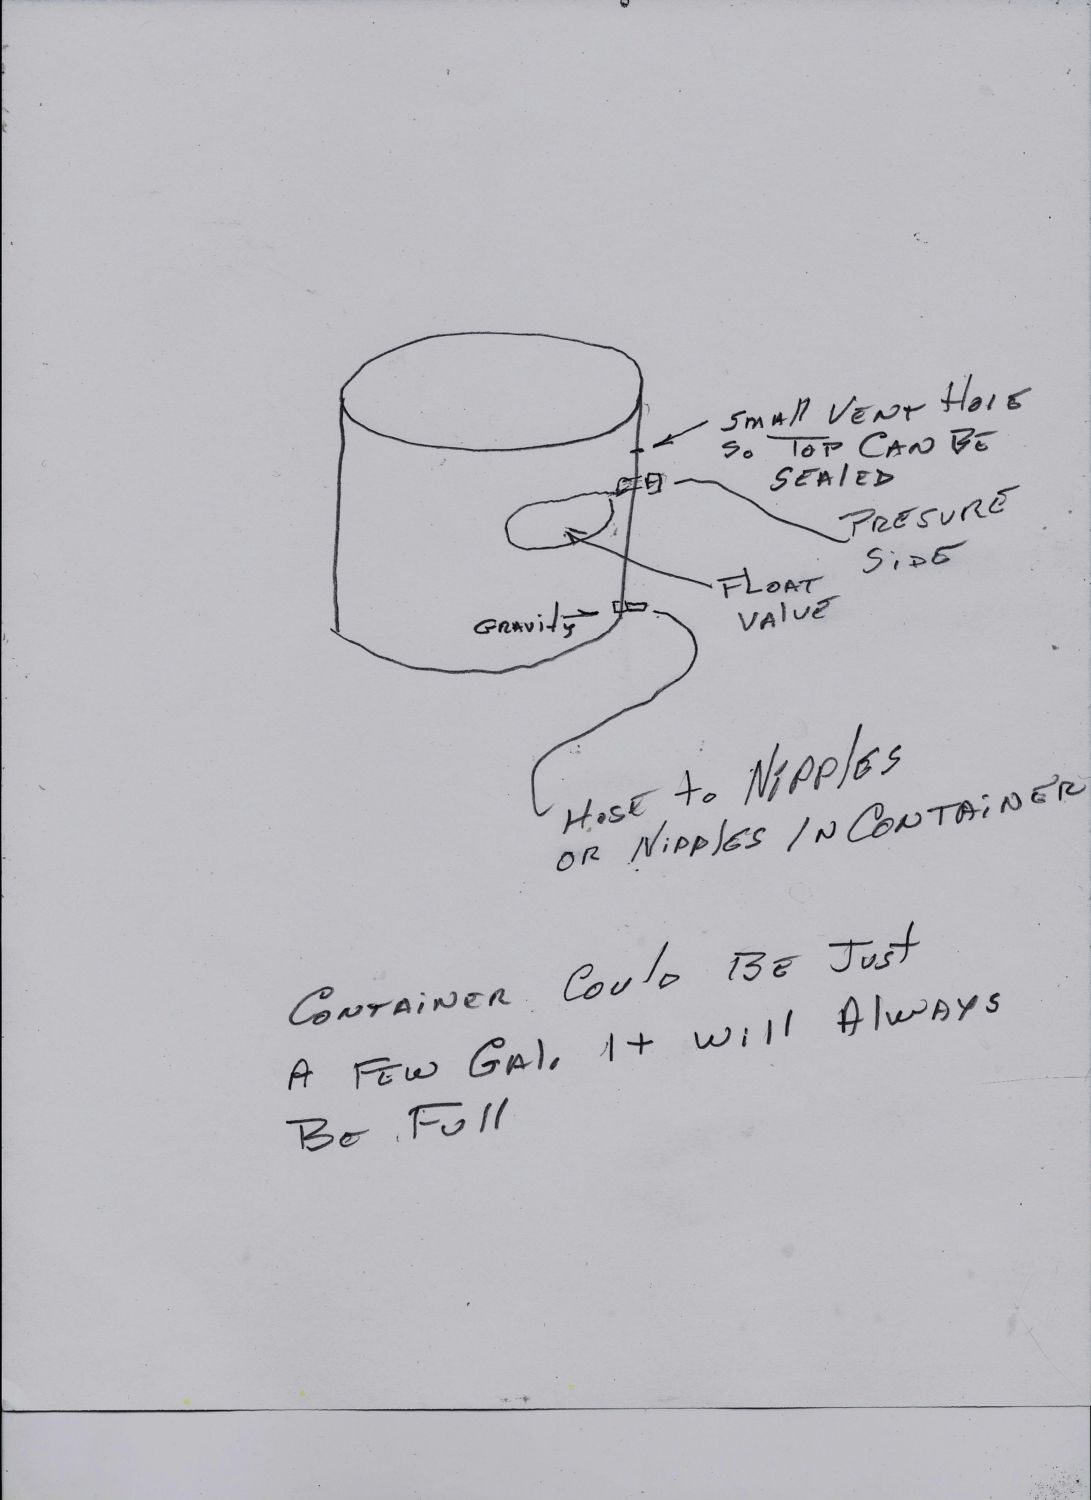 SMAll VENT HOlE
So TOP CAN BE
SEAlED
PRESURE
SiDE
FLOAT
VAlUE
GRAVity
HOSE to NiPPlES
OR NiPPlES IN CONTAiNER
CONTAiNER COUlD BE JUSt
A FEW GAl. It Will AlWAYS
BE FUll